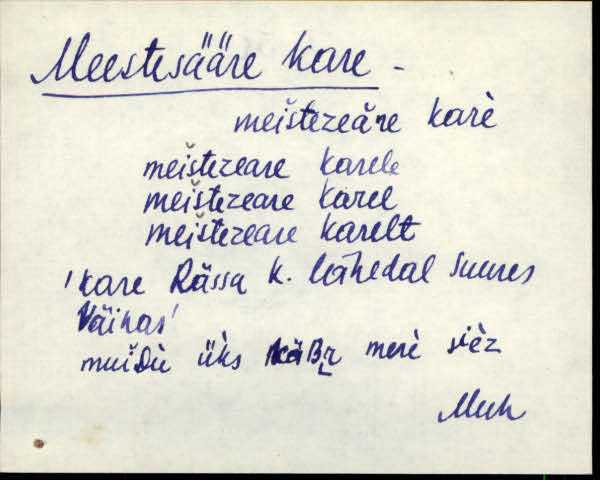 Meestesääre kare -
meištezeäre karè
meištezeare karele
meištezeare karel
meištezeare karelt
'kare Rässa k. lähedal Suures
Väinas'
muiDù üks merè sièz
Muh